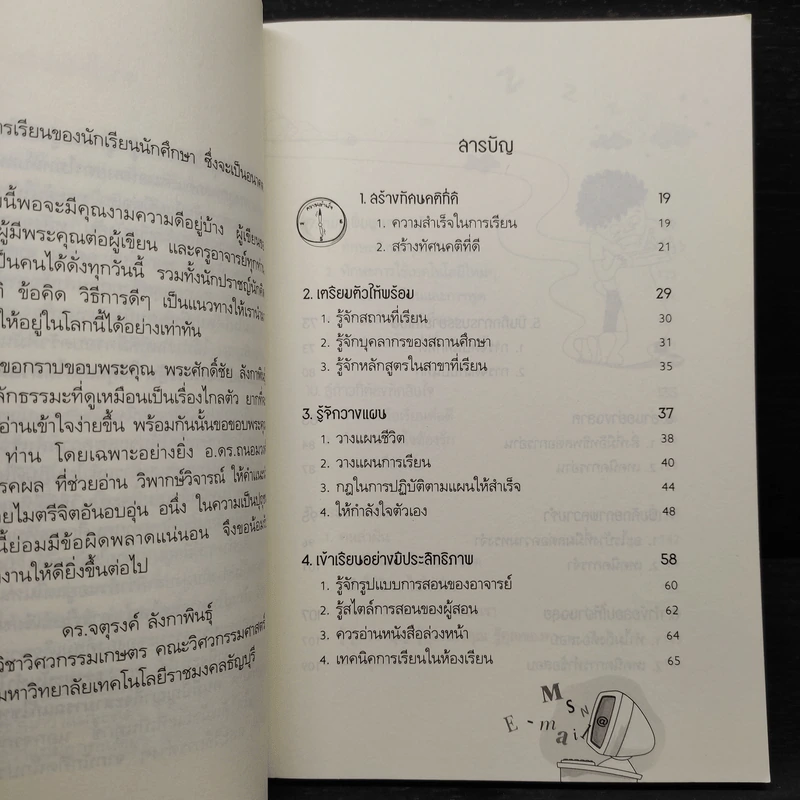 รเรียนของนักเรียนนักศึกษา ซึ่งจะเป็นอนาคต
นี้พอจะมีคุณงามความดีอยู่บ้าง ผู้เขียนขอ
ผู้มีพระคุณต่อผู้เขียน และครูอาจารย์ทุกท่าน
เป็นคนได้ดั่งทุกวันนี้ รวมทั้งนักปราชญ์นักคิด
ข้อคิด วิธีการดีๆ เป็นแนวทางให้เรานำมา
ให้อยู่ในโลกนี้ได้อย่างเท่าทัน
ขอกราบขอบพระคุณ พระศักดิ์ชัย ลังกาพันธุ์
ลักธรรมะที่ดูเหมือนเป็นเรื่องไกลตัว ยากที่จะ
อ่านเข้าใจง่ายขึ้น พร้อมกันนั้นขอขอบพระคุณ
ท่าน โดยเฉพาะอย่างยิ่ง อ.ดร.ถนอมวง
รคผล ที่ช่วยอ่าน วิพากษ์วิจารณ์ ให้คำแนะนำ
ยไมตรีจิตอันอบอุ่น อนึ่ง ในความเป็นปุถุช
นี้ย่อมมีข้อผิดพลาดแน่นอน จึงขอน้อมรับ
งานให้ดียิ่งขึ้นต่อไป
ดร.จตุรงค์ ลังกาพินธุ์
วิชาวิศวกรรมเกษตร คณะวิศวกรรมศาสตร์
มหาวิทยาลัยเทคโนโลยีราชมงคลธัญบุรี
สารบัญ
1. สร้างทัศนคติที่ดี 19
1. ความสำเร็จในการเรียน 19
2. สร้างทัศนคติที่ดี 21
2. เตรียมตัวให้พร้อม 29
1. รู้จักสถานที่เรียน 30
2. รู้จักบุคลากรของสถานศึกษา 31
3. รู้จักหลักสูตรในสาขาที่เรียน 35
3. รู้จักวางแผน 37
1. วางแผนชีวิต 38
2. วางแผนการเรียน 40
3. กฎในการปฏิบัติตามแผนให้สำเร็จ 44
4. ให้กำลังใจตัวเอง 48
4. เข้าเรียนอย่างมีประสิทธิภาพ 58
1. รู้จักรูปแบบการสอนของอาจารย์ 60
2. รู้สไตล์การสอนของผู้สอน 62
3. ควรอ่านหนังสือล่วงหน้า 64
4. เทคนิคการเรียนในห้องเรียน 65
MSN
E-mail
@